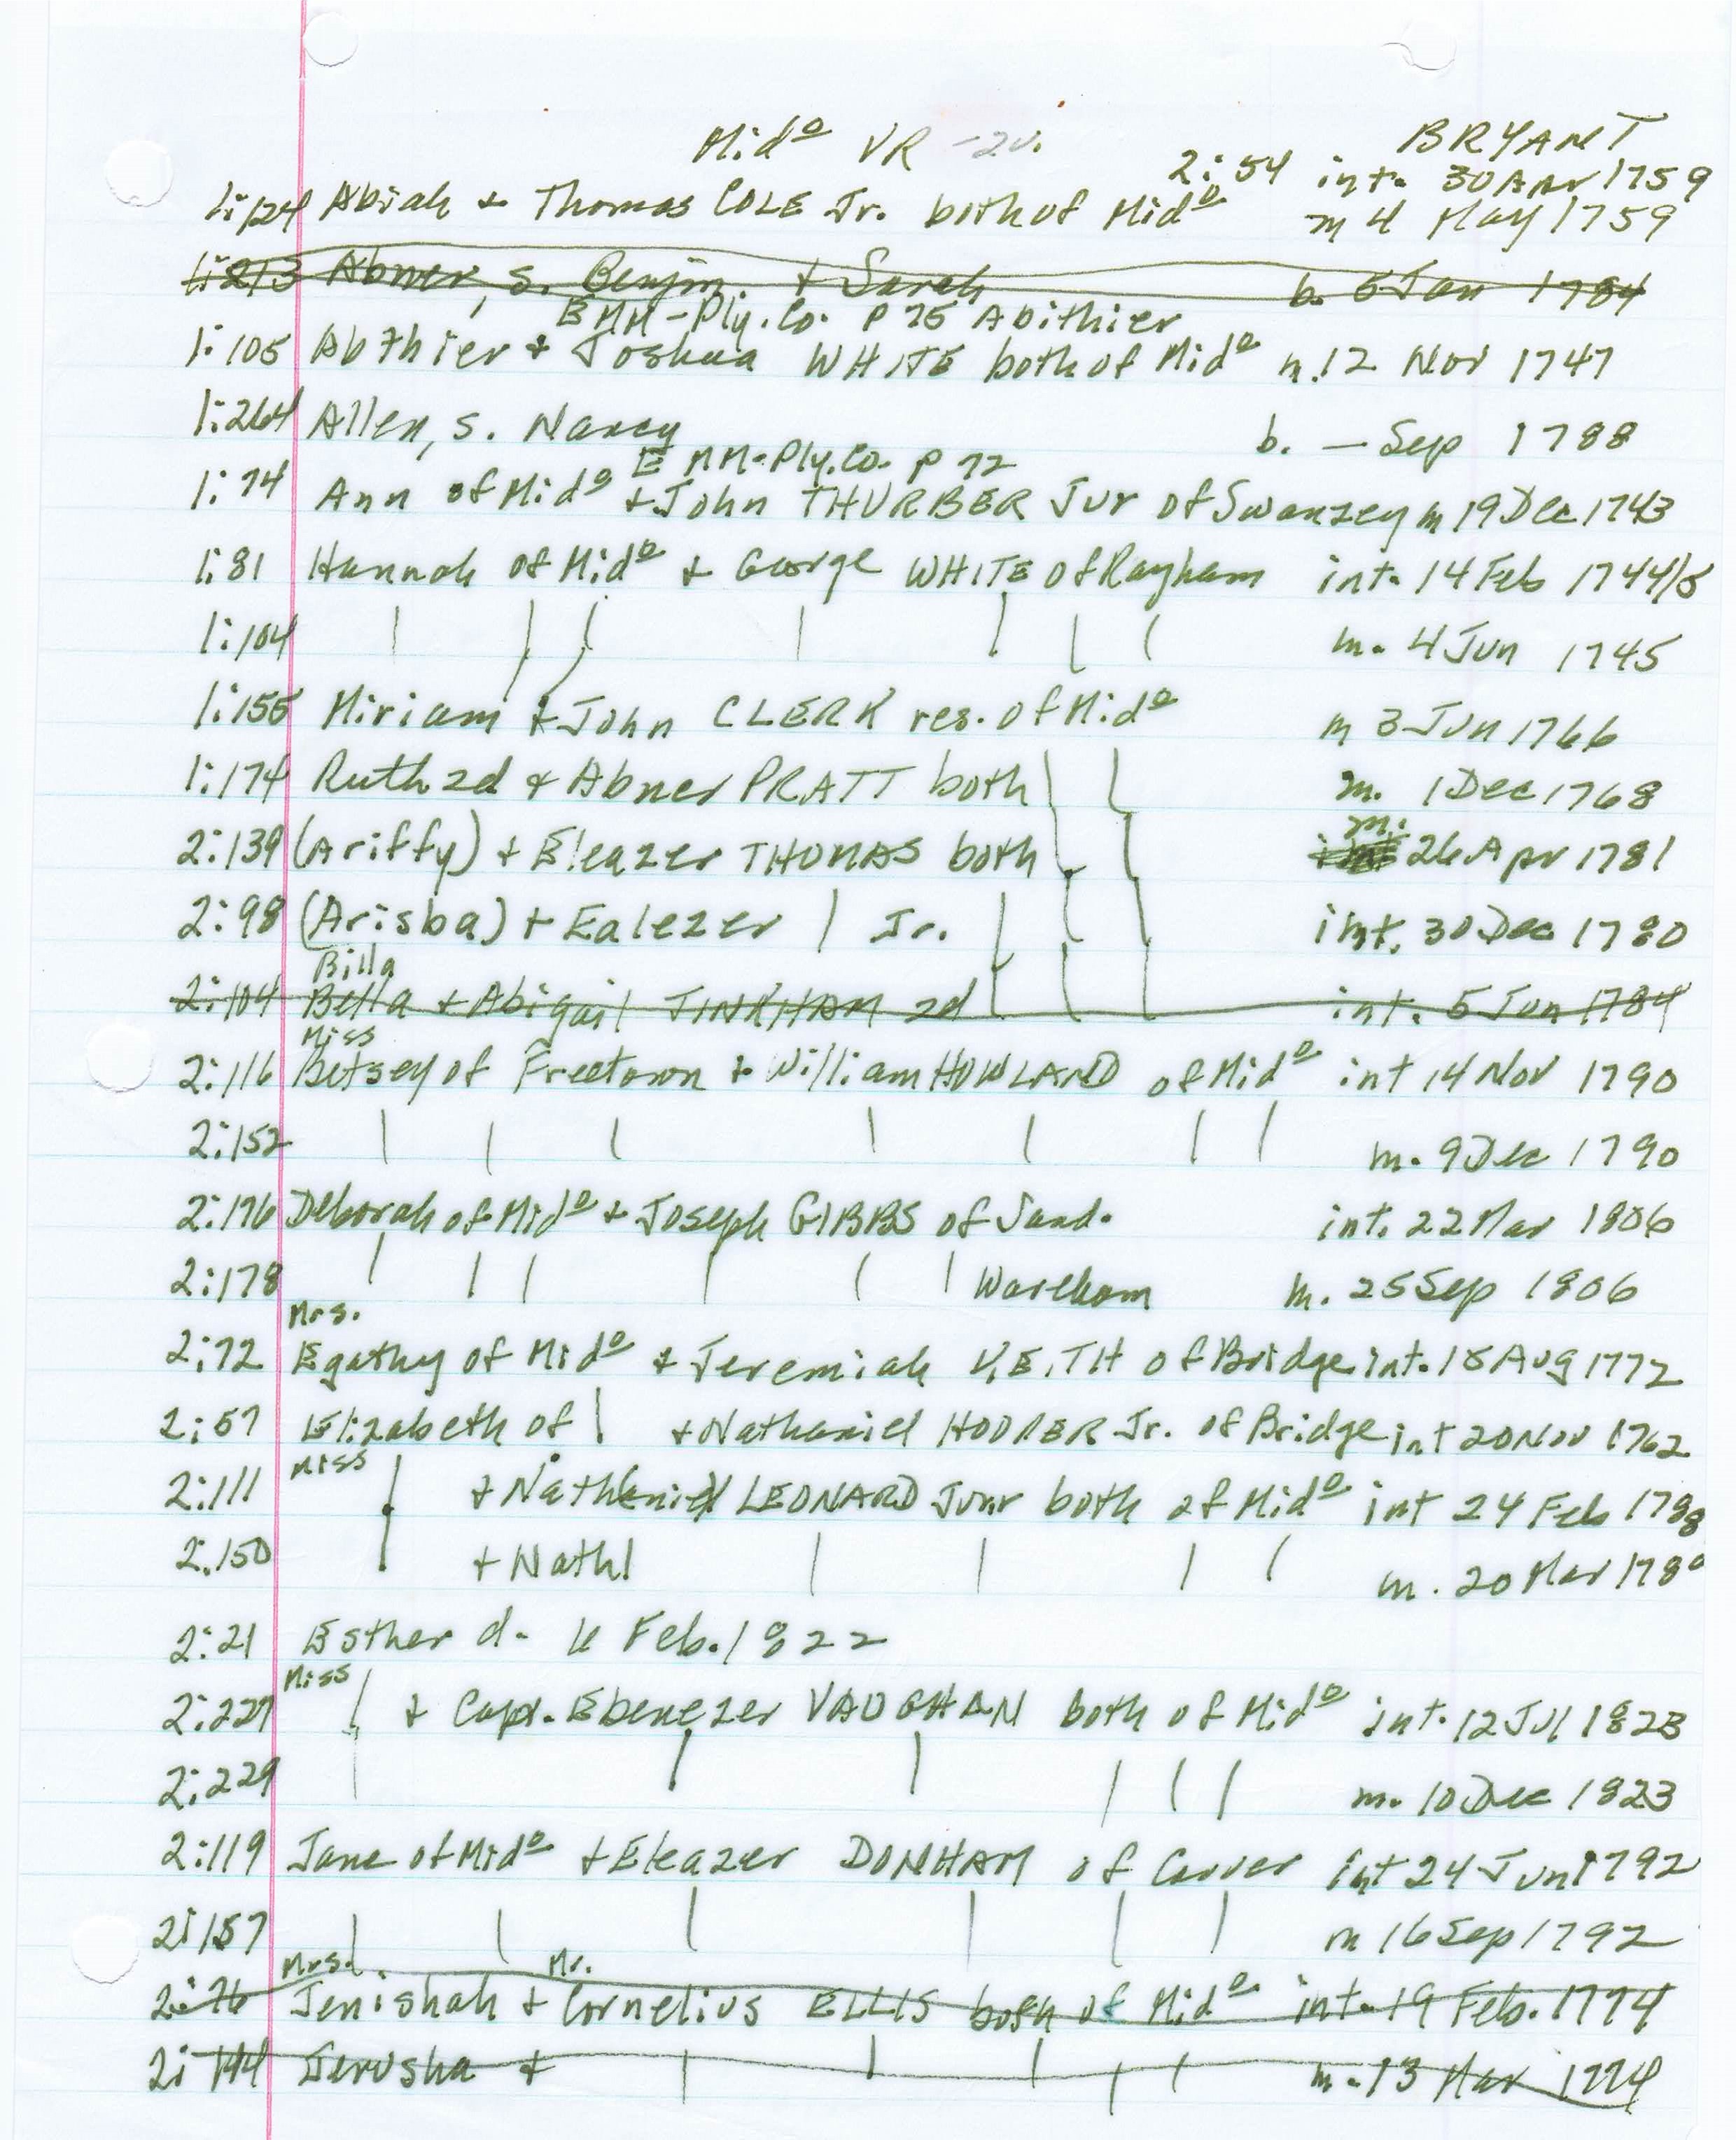 Mid° VR -2v. BRYANT
2:54 int. 30 Apr 1759
1:124 Abiah + Thomas COLE Jr. both of Mid° m 4 May 1759
1:213 Abner, s. Benjm. + Sarah b. 5 Jan 1784
EMM-Ply.Co. p 75 Abithier
1:105 Abthier + Joshua WHITE both of Mid° m. 12 Nov 1747
1:264 Allen, s. Nancy b. — Sep 1788
EMM-Ply.Co. p 72
1:74 Ann of Mid° + John THURBER Jur of Swanzey m 19 Dec 1743
1:81 Hannah of Mid° + George WHITE of Raynham int. 14 Feb 1744/5
1:104 | | | | | | | m. 4 Jun 1745
1:155 Miriam + John CLERK res. of Mid° m 3 Jun 1766
1:174 Ruth 2d + Abner PRATT both | | m. 1 Dec 1768
m.
2:139 (Ariffy) + Eleazer THOMAS both | | 26 Apr 1781
2:98 (Arisba) + Ealezer | Jr. | | | int. 30 Dec 1780
Billa
2:104 Bella + Abigail TINKHAM 2d | | | int. 5 Jun 1784
Miss
2:116 Betsey of Freetown + William HOWLAND of Mid° int 14 Nov 1790
2:152 | | | | | | | m. 9 Dec 1790
2:176 Deborah of Mid° + Joseph GIBBS of Sand. int. 22 Mar 1806
2:178 | | | | | | Wareham m. 25 Sep 1806
Mrs.
2:72 Egathy of Mid° + Jeremiah KEITH of Bridge int. 18 Aug 1772
2:57 Elizabeth of | + Nathaniel HOOPER Jr. of Bridge int 20 Nov 1762
Miss
2:111 | + Nathaniel LEONARD Junr both of Mid° int 24 Feb 1788
2:150 | + Nathl | | | | m. 20 Mar 178
2:21 Esther d. 4 Feb. 1822
Miss
2:227 | + Capt. Ebenezer VAUGHAN both of Mid° int. 12 Jul 1823
2:229 | | | | | | m. 10 Dec 1823
2:119 Jane of Mid° + Eleazer DONHAM of Carver int 24 Jun 1792
2:157 | | | | | | m 16 Sep 1792
Mrs. Mr.
2:76 Jenishah + Cornelius ELLIS both of Mid° int. 19 Feb. 1774
2:144 Jerusha + | | | | | m. 13 Mar 1774